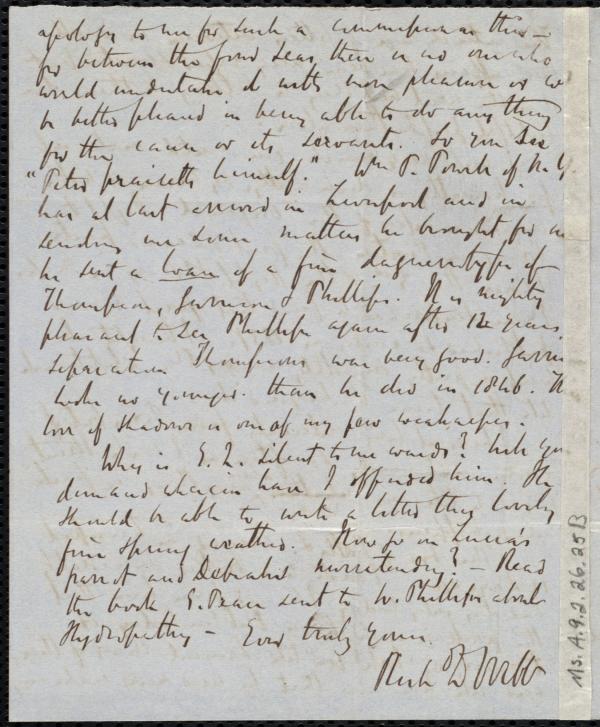 apology to me for such a commission as this —
for between the four seas, there is no one who
would undertake it with more pleasure or wd
be better pleased in being able to do any thing
for the cause or its servants. So you see
"Peter praiseth himself." Wm P. Powell of N.Y.
has at last arrived in Liverpool and in
sending me some matters he brought for me
he sent a loan of a fine daguerreotype of
Thompson, Garrison & Phillips. It is mighty
pleasant to see Phillips again after 12 years
separation. Thompsons was very good. Garrison
looks no younger than he did in 1846. The
love of shadows is one of my few weaknesses.
Why is E. Q. silent to me wards? Will you
demand wherein have I offended him. He
should be able to write a letter this lovely
fine Spring weather. How go on Lucia's
parrot and Deborah's ? — Read
the book E. Pease sent to W. Phillips about
Hydropathy — Ever truly yours.
Richd D Webb
Ms. A.9.2.26.25B